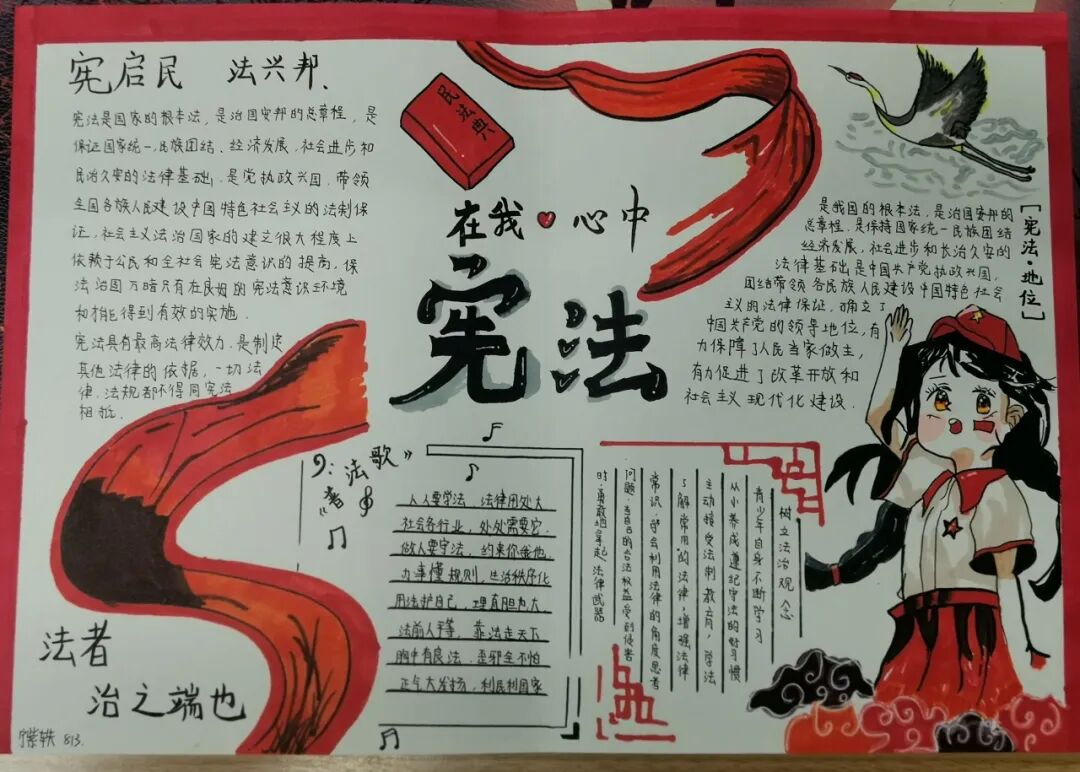 宪启民 法兴邦、
宪法是国家的根本法，是治国安邦的总章程，是
保证国家统一、民族团结、经济发展、社会进步和
民治久安的法律基础、是党执政兴国、带领
全国各族人民建设中国特色社会主义的法制保
证，社会主义法治国家的建立很大程度上
依赖于公民和全社会宪法意识的提高，保
法治国万暗只有在良姆的宪法意识环境
和才能得到有效的实施．
宪法具有最高法律效力．是制定
其他法律的依据，一切法
律、法规都不得同宪法
相抵．
民法典
在我心中
宪法
[宪法·地位]
是我国的根本法，是治国安邦的
总章程．是保持国家统一民族团结
经济发展，社会进步和长治久安的
法律基础是中国共产党执政兴国，
团结带领各民族人民建设中国特色社会
主义的法律保证，确立了
中国共产党的领导地位，有
力保障了人民当家做主，
有力促进了改革开放和
社会主义现代化建设．
《普法歌》
人人要学法 法律用处大
社会各行业，处处需要它．
做人要守法，约束你我他．
办事懂规则，生活秩序化
用法护自己，理直胆气大
法前人平等，靠法走天下
胸中有良法．歪邪全不怕
正气大发扬，利民利国家
树立法治观念
青少年自身不断学习
从小养成遵纪守法的好习惯
主动接受法制教育，学法
了解常用的法律，增强法律
常识，学会利用法律的角度思考
问题，当自己的合法权益受到侵害
时，勇敢地拿起法律武器
法者
治之端也
813.